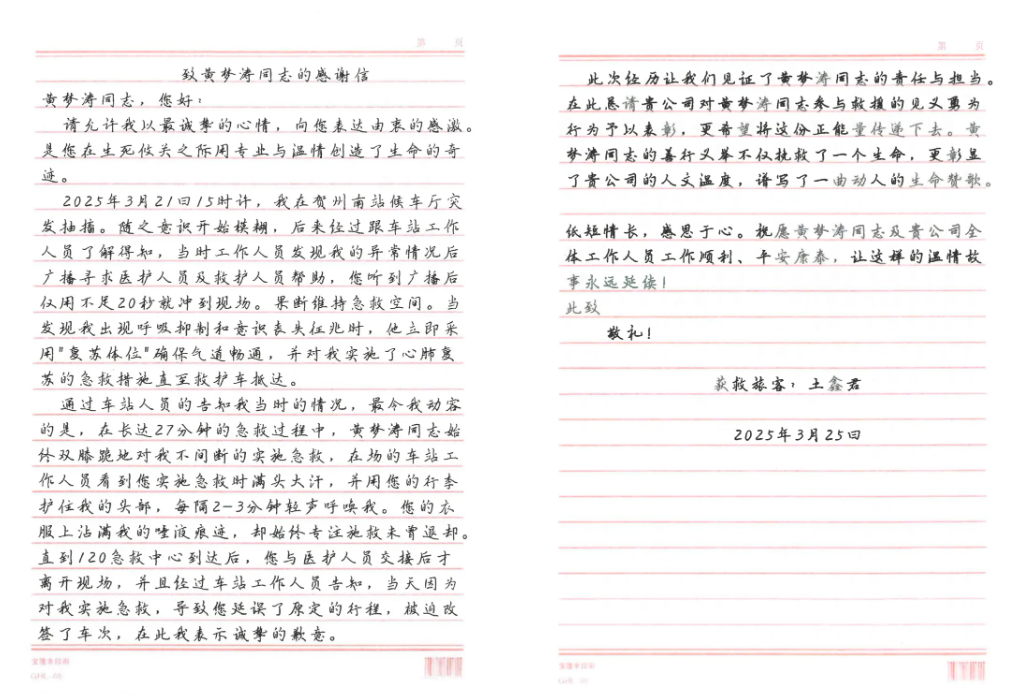 第 页
致黄梦涛同志的感谢信
黄梦涛同志，您好：
请允许我以最诚挚的心情，向您表达由衷的感激。
是您在生死攸关之际用专业与温情创造了生命的奇
迹。
2025年3月21日15时许，我在贺州南站候车厅突
发抽搐。随之意识开始模糊，后来经过跟车站工作
人员了解得知，当时工作人员发现我的异常情况后
广播寻求医护人员及救护人员帮助，您听到广播后
仅用不足20秒就冲到现场。果断维持急救空间。当
发现我出现呼吸抑制和意识丧失征兆时，他立即采
用"复苏体位"确保气道畅通，并对我实施了心肺复
苏的急救措施直至救护车抵达。
通过车站人员的告知我当时的情况，最令我动容
的是，在长达27分钟的急救过程中，黄梦涛同志始
终双膝跪地对我不间断的实施急救，在场的车站工
作人员看到您实施急救时满头大汗，并用您的行李
护住我的头部，每隔2-3分钟轻声呼唤我。您的衣
服上沾满我的唾液痕迹，却始终专注施救未曾退却。
直到120急救中心到达后，您与医护人员交接后才
离开现场，并且经过车站工作人员告知，当天因为
对我实施急救，导致您延误了原定的行程，被迫改
签了车次，在此我表示诚挚的歉意。
第 页
此次经历让我们见证了黄梦涛同志的责任与担当。
在此恳请贵公司对黄梦涛同志参与救援的见义勇为
行为予以表彰，更希望将这份正能量传递下去。黄
梦涛同志的善行义举不仅挽救了一个生命，更彰显
了贵公司的人文温度，谱写了一曲动人的生命赞歌。
纸短情长，感恩于心。祝愿黄梦涛同志及贵公司全
体工作人员工作顺利、平安康泰，让这样的温情故
事永远延续！
此致
敬礼！
获救旅客：王鑫君
2025年3月25日